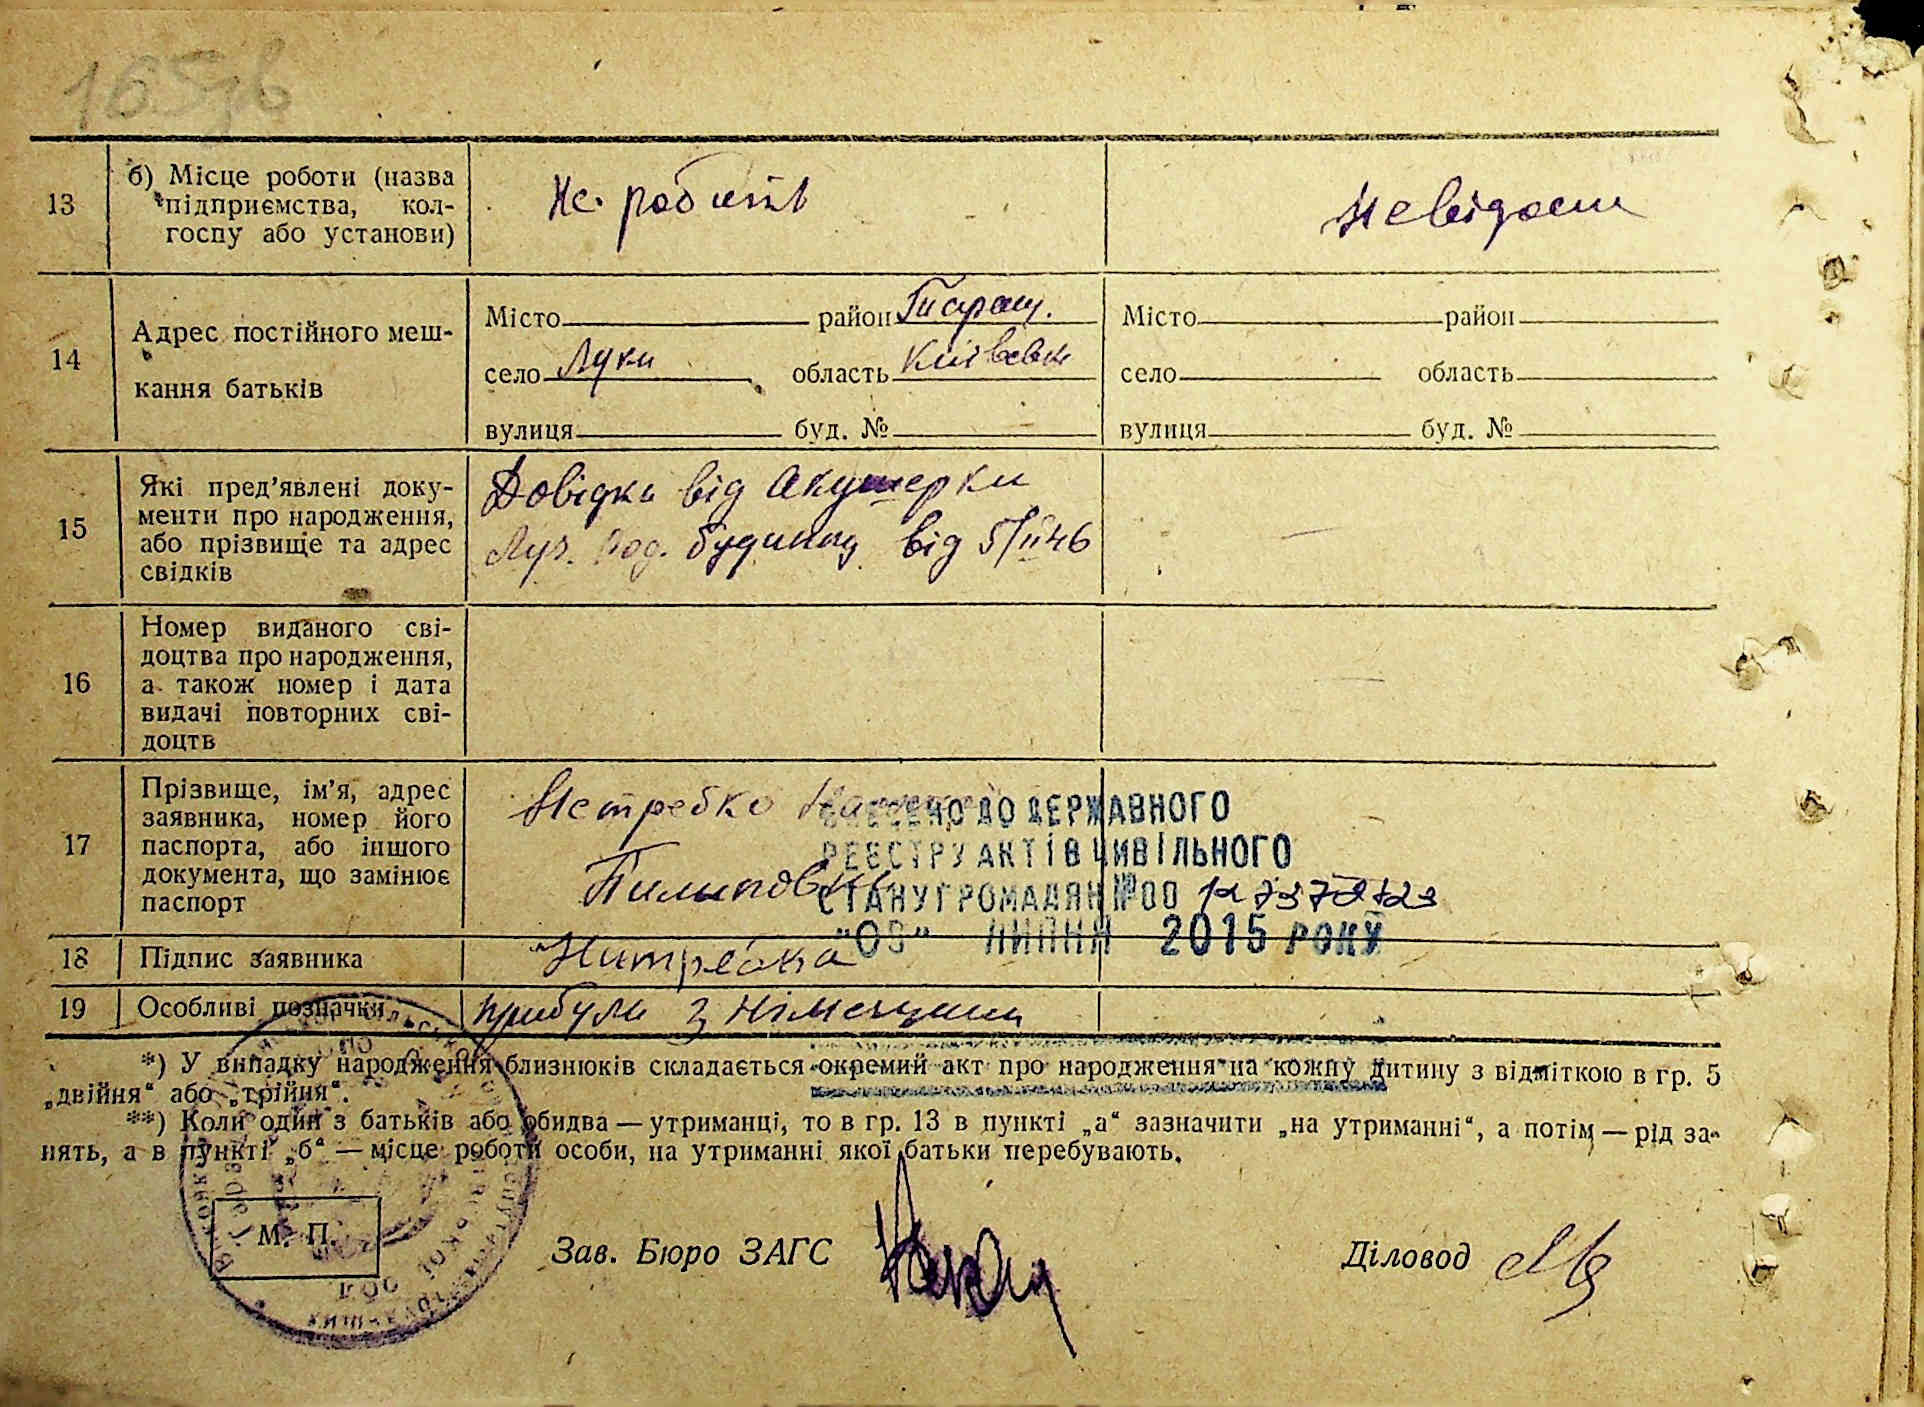 165зв
13
б) Місце роботи (назва
підприємства, кол-
госпу або установи)
Не робить
Невідоми
14
Адрес постійного меш-
кання батьків
Місто район Таращ.
село Луки область Київськ
вулиця буд. №
Місто район
село область
вулиця буд. №
15
Які пред’явлені доку-
менти про народження,
або прізвище та адрес
свідків
Довідка від Акушерки
Луч. Род. будинку від 5/II 46
16
Номер виданого сві-
доцтва про народження,
а також номер і дата
видачі повторних сві-
доцтв
17
Прізвище, ім’я, адрес
заявника, номер його
паспорта, або іншого
документа, що замінює
паспорт
Нетребко
Пилиповна
ВНЕСЕНО ДО ДЕРЖАВНОГО
РЕЄСТРУ АКТІВ ЦИВІЛЬНОГО
СТАНУ ГРОМАДЯН №00
ЛИПНЯ 2015 РОКУ
18
Підпис заявника
Нитребка
19
Особливі позначки
прибули з Німеччини
*) У випадку народження близнюків складається окремий акт про народження на кожну дитину з відміткою в гр. 5
„двійня“ або „трійня“.
**) Коли один з батьків або обидва — утриманці, то в гр. 13 в пункті „а“ зазначити „на утриманні“, а потім — рід за-
нять, а в пункті „б“ — місце роботи особи, на утриманні якої батьки перебувають.
М. П.
Зав. Бюро ЗАГС
Діловод